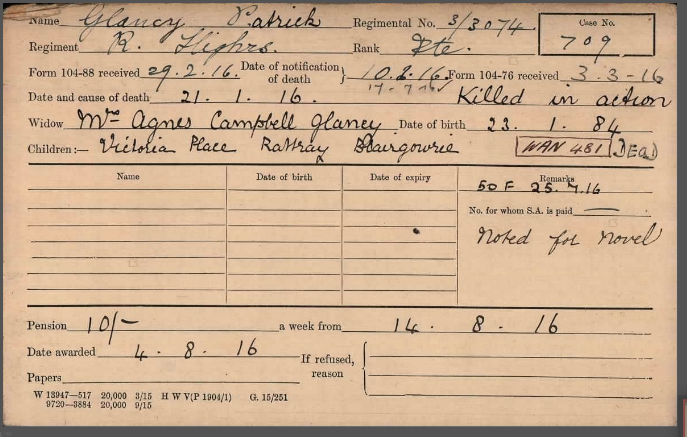 Name Glancy Patrick Regimental No. 3/3074 Case No.
Regiment R. Highrs. Rank Pte. 709
Form 104-88 received 29.2.16. Date of notification of death } 10.2.16. Form 104-76 received 3-3-16
17-7-16
Date and cause of death 21. 1. 16. Killed in action
Widow Mrs Agnes Campbell Glancy Date of birth 23. 1. 84
Children:— Victoria Place Rattray Blairgowrie WAN 481 DEAD
Name Date of birth Date of expiry Remarks
50 F 25.7.16
No. for whom S.A. is paid
Noted for Novel
Pension 10/- a week from 14. 8. 16
Date awarded 4. 8. 16
If refused, reason
Papers
W 13947—517 20,000 3/15 H W V(P 1904/1) G. 15/251
9720—3884 20,000 9/15